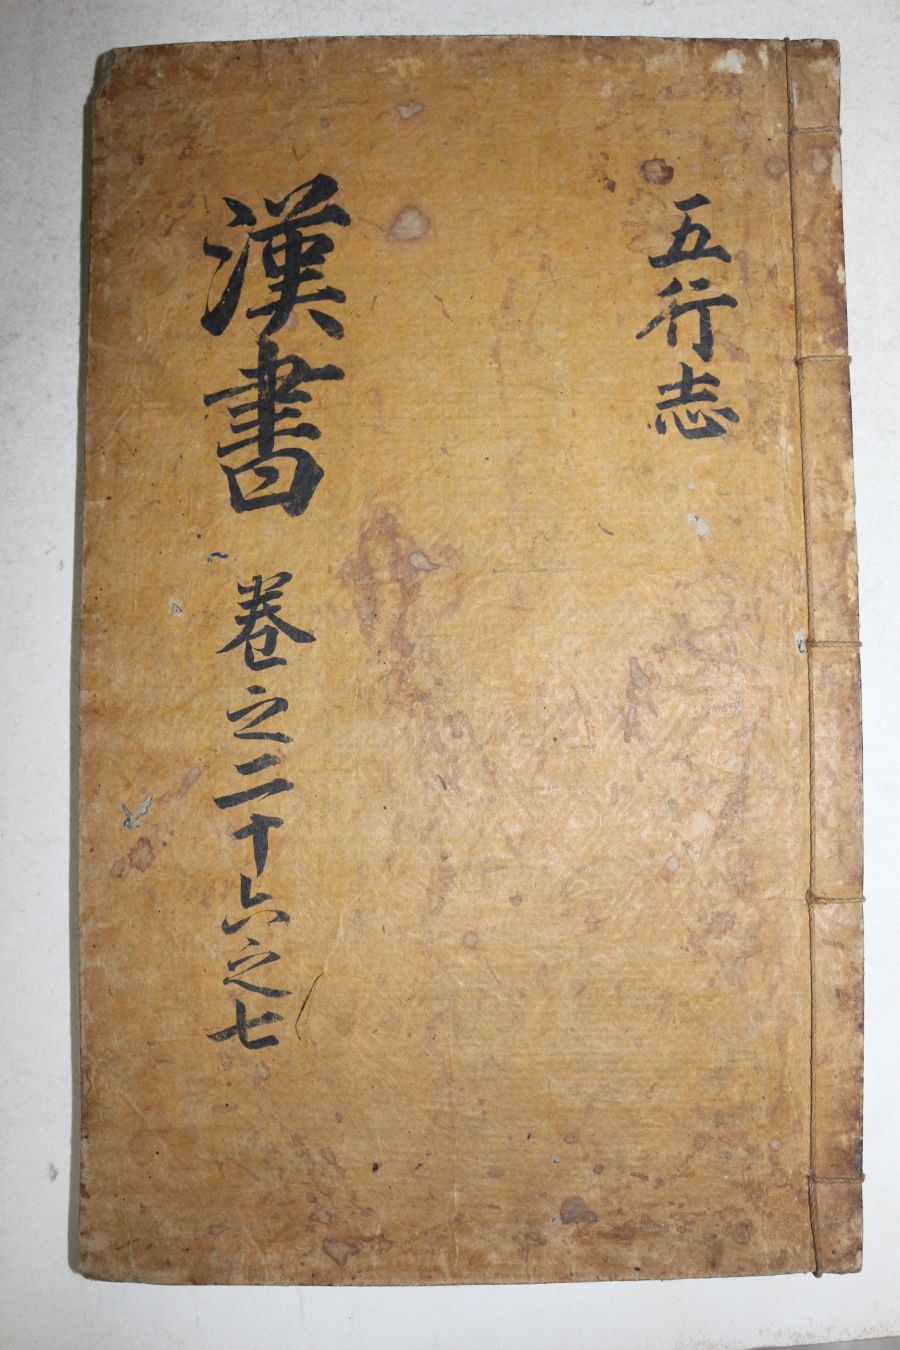 五行志
漢書 卷之二十六之七